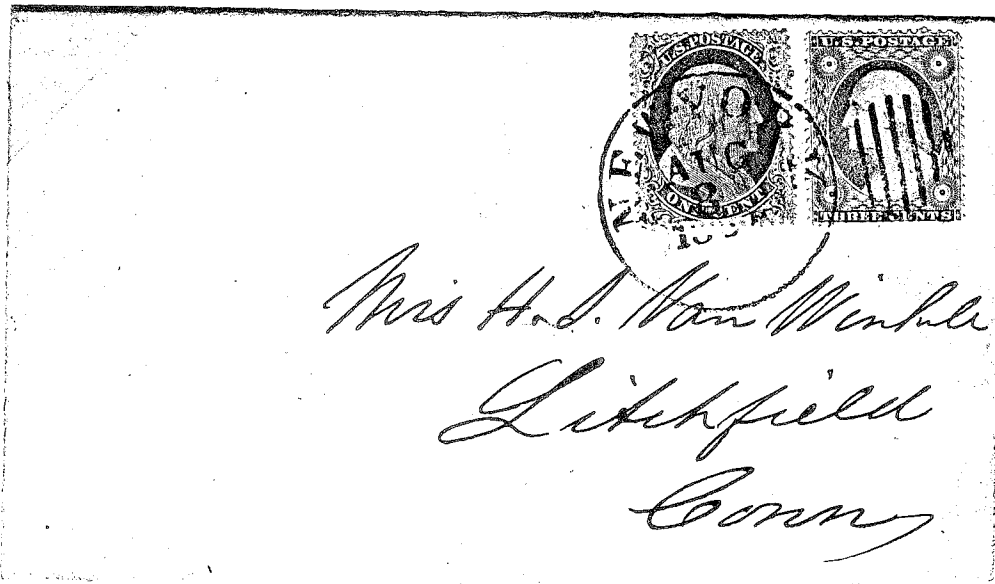 U.S. POSTAGE
ONE CENT
U.S. POSTAGE
THREE CENTS
AUG
2
Mrs H. S. Van Winkle
Litchfield
Conn